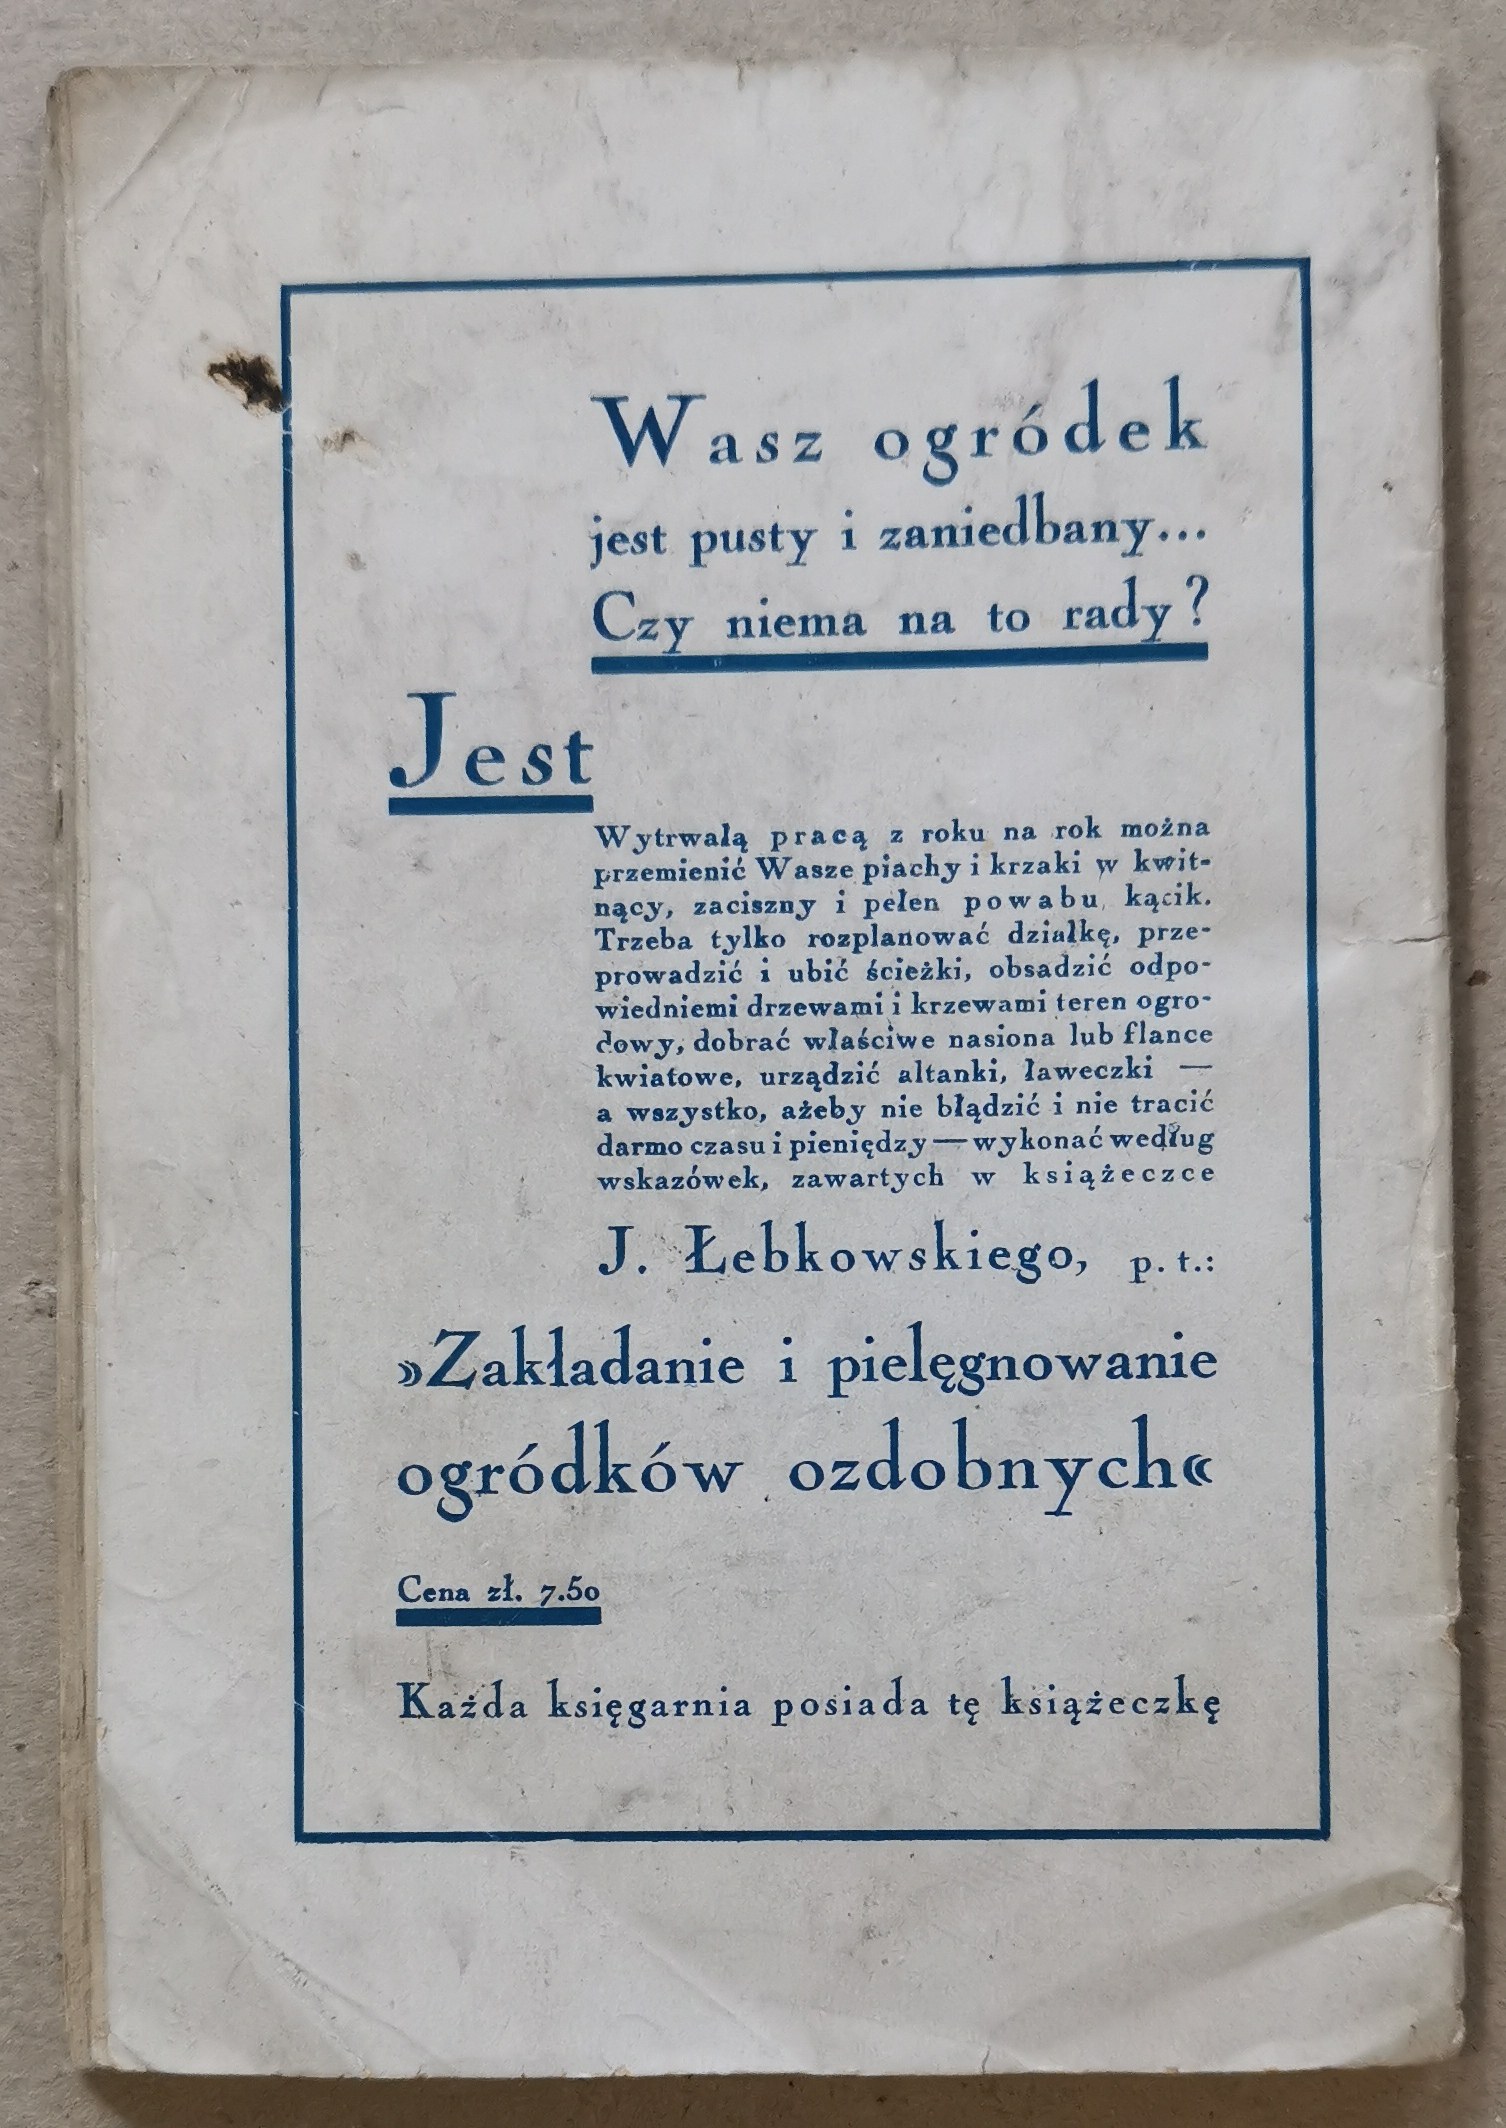 Wasz ogródek
jest pusty i zaniedbany...
Czy niema na to rady?
Jest
Wytrwałą pracą z roku na rok można
przemienić Wasze piachy i krzaki w kwit-
nący, zaciszny i pełen powabu, kącik.
Trzeba tylko rozplanować działkę, prze-
prowadzić i ubić ścieżki, obsadzić odpo-
wiedniemi drzewami i krzewami teren ogro-
dowy, dobrać właściwe nasiona lub flance
kwiatowe, urządzić altanki, ławeczki —
a wszystko, ażeby nie błądzić i nie tracić
darmo czasu i pieniędzy — wykonać według
wskazówek, zawartych w książeczce
J. Łebkowskiego, p. t.:
»Zakładanie i pielęgnowanie
ogródków ozdobnych«
Cena zł. 7.50
Każda księgarnia posiada tę książeczkę